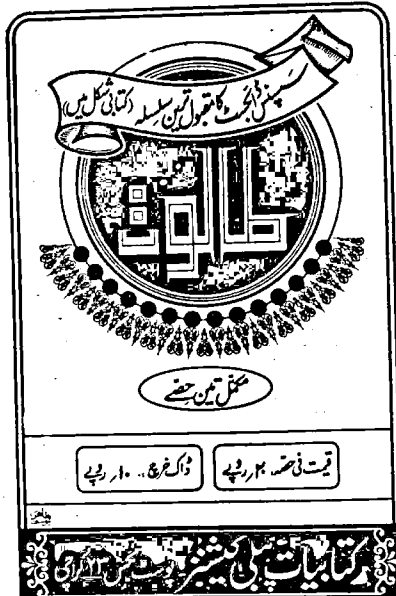 سسپنس ڈائجسٹ کا مقبول ترین سلسلہ (کتابی شکل میں)
طالوت
مکمل تین حصے
قیمت فی حصہ ۲۰؍ روپے
ڈاک خرچ ۱۰؍ روپے
کتابیات پبلی کیشنز پوسٹ بکس ۲۳ کراچی